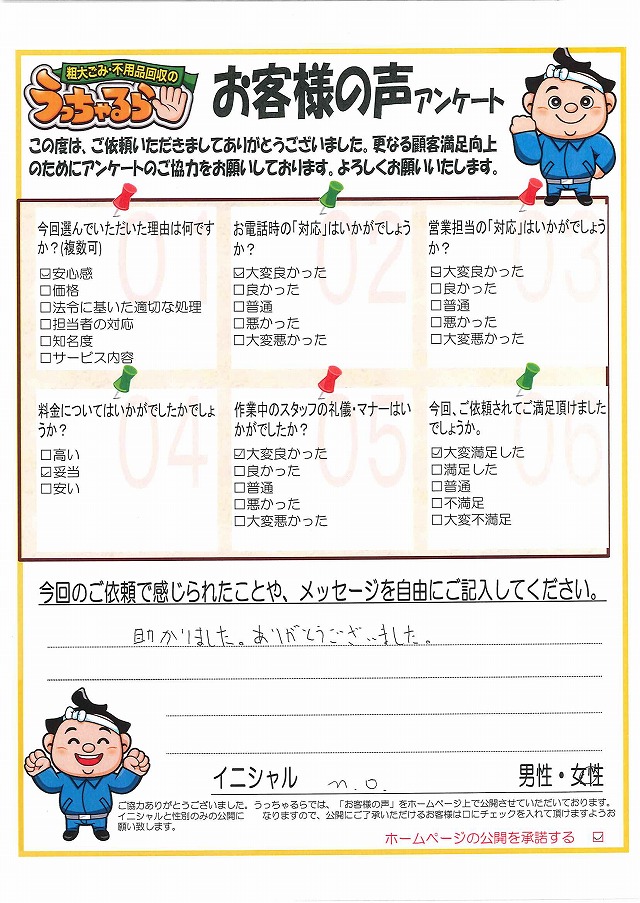 粗大ごみ・不用品回収の
うっちゃるら
お客様の声アンケート
この度は、ご依頼いただきましてありがとうございました。更なる顧客満足向上
のためにアンケートのご協力をお願いしております。よろしくお願いいたします。
01
今回選んでいただいた理由は何です
か?(複数可)
☑安心感
□価格
□法令に基いた適切な処理
□担当者の対応
□知名度
□サービス内容
02
お電話時の「対応」はいかがでしょう
か?
☑大変良かった
□良かった
□普通
□悪かった
□大変悪かった
03
営業担当の「対応」はいかがでしょう
か?
☑大変良かった
□良かった
□普通
□悪かった
□大変悪かった
04
料金についてはいかがでしたかでしょ
うか?
□高い
☑妥当
□安い
05
作業中のスタッフの礼儀・マナーはい
かがでしたか?
☑大変良かった
□良かった
□普通
□悪かった
□大変悪かった
06
今回、ご依頼されてご満足頂けました
でしょうか。
☑大変満足した
□満足した
□普通
□不満足
□大変不満足
今回のご依頼で感じられたことや、メッセージを自由にご記入してください。
助かりました。ありがとうございました。
イニシャル n.o. 男性・女性
ご協力ありがとうございました。うっちゃるらでは、「お客様の声」をホームページ上で公開させていただいております。
イニシャルと性別のみの公開に なりますので、公開にご了承いただけるお客様は□にチェックを入れて頂けますようお
願い致します。
ホームページの公開を承諾する ☑